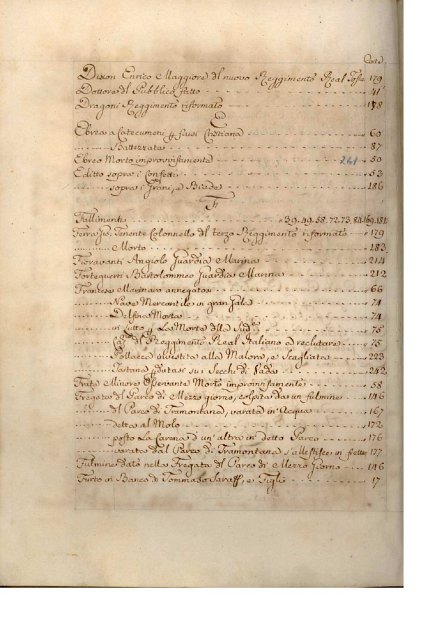 Carte
Dixon Enrico Maggiore del nuovo Reggimento Real 179
Dottore del Pubblico fatto 41
Dragoni Reggimento riformato 178
E
Ebreo a Catecumeni p. farsi Cristiano 60
Battezzato 87
Ebreo Morto improvvisamente 261 50
Editto sopra i Confetti 53
sopra i Grani, e Biade 186
F
Fallimenti 39.49.58.72.73.84.169.181
Ferra Tenente Colonnello del terzo Reggimento riformato 179
Morto 183
Fioravanti Angiolo Guardia Marina 214
Forteguerri Bartolommeo Guardia Marina 212
Franzese Marinaro annegato 66
Nave Mercantile in gran gala 74
Delfina Morta 74
in lutto p. La Morte della Sud. 75
del Reggimento Real Italiano a reclutare 75
Pollacca investita alla Meloria, e Scagliata 223
Tartana su i Secchi di Vada 242
Frate Minore Osservante Morto improvvisamente 58
Fregata del Parco di Mezzo giorno, colpita da un fulmine 146
del Parco di Tramontana, varata in Acqua 167
detta al Molo 172
posto La Carena d'un' altra in detto Parco 176
varata dal Parco di Tramontana s'allestisce in fretta 177
Fulmine dato nella Fregata del Parco di Mezzo Giorno 146
Furto in Banco di Tommaso Saraff, e Figli 17